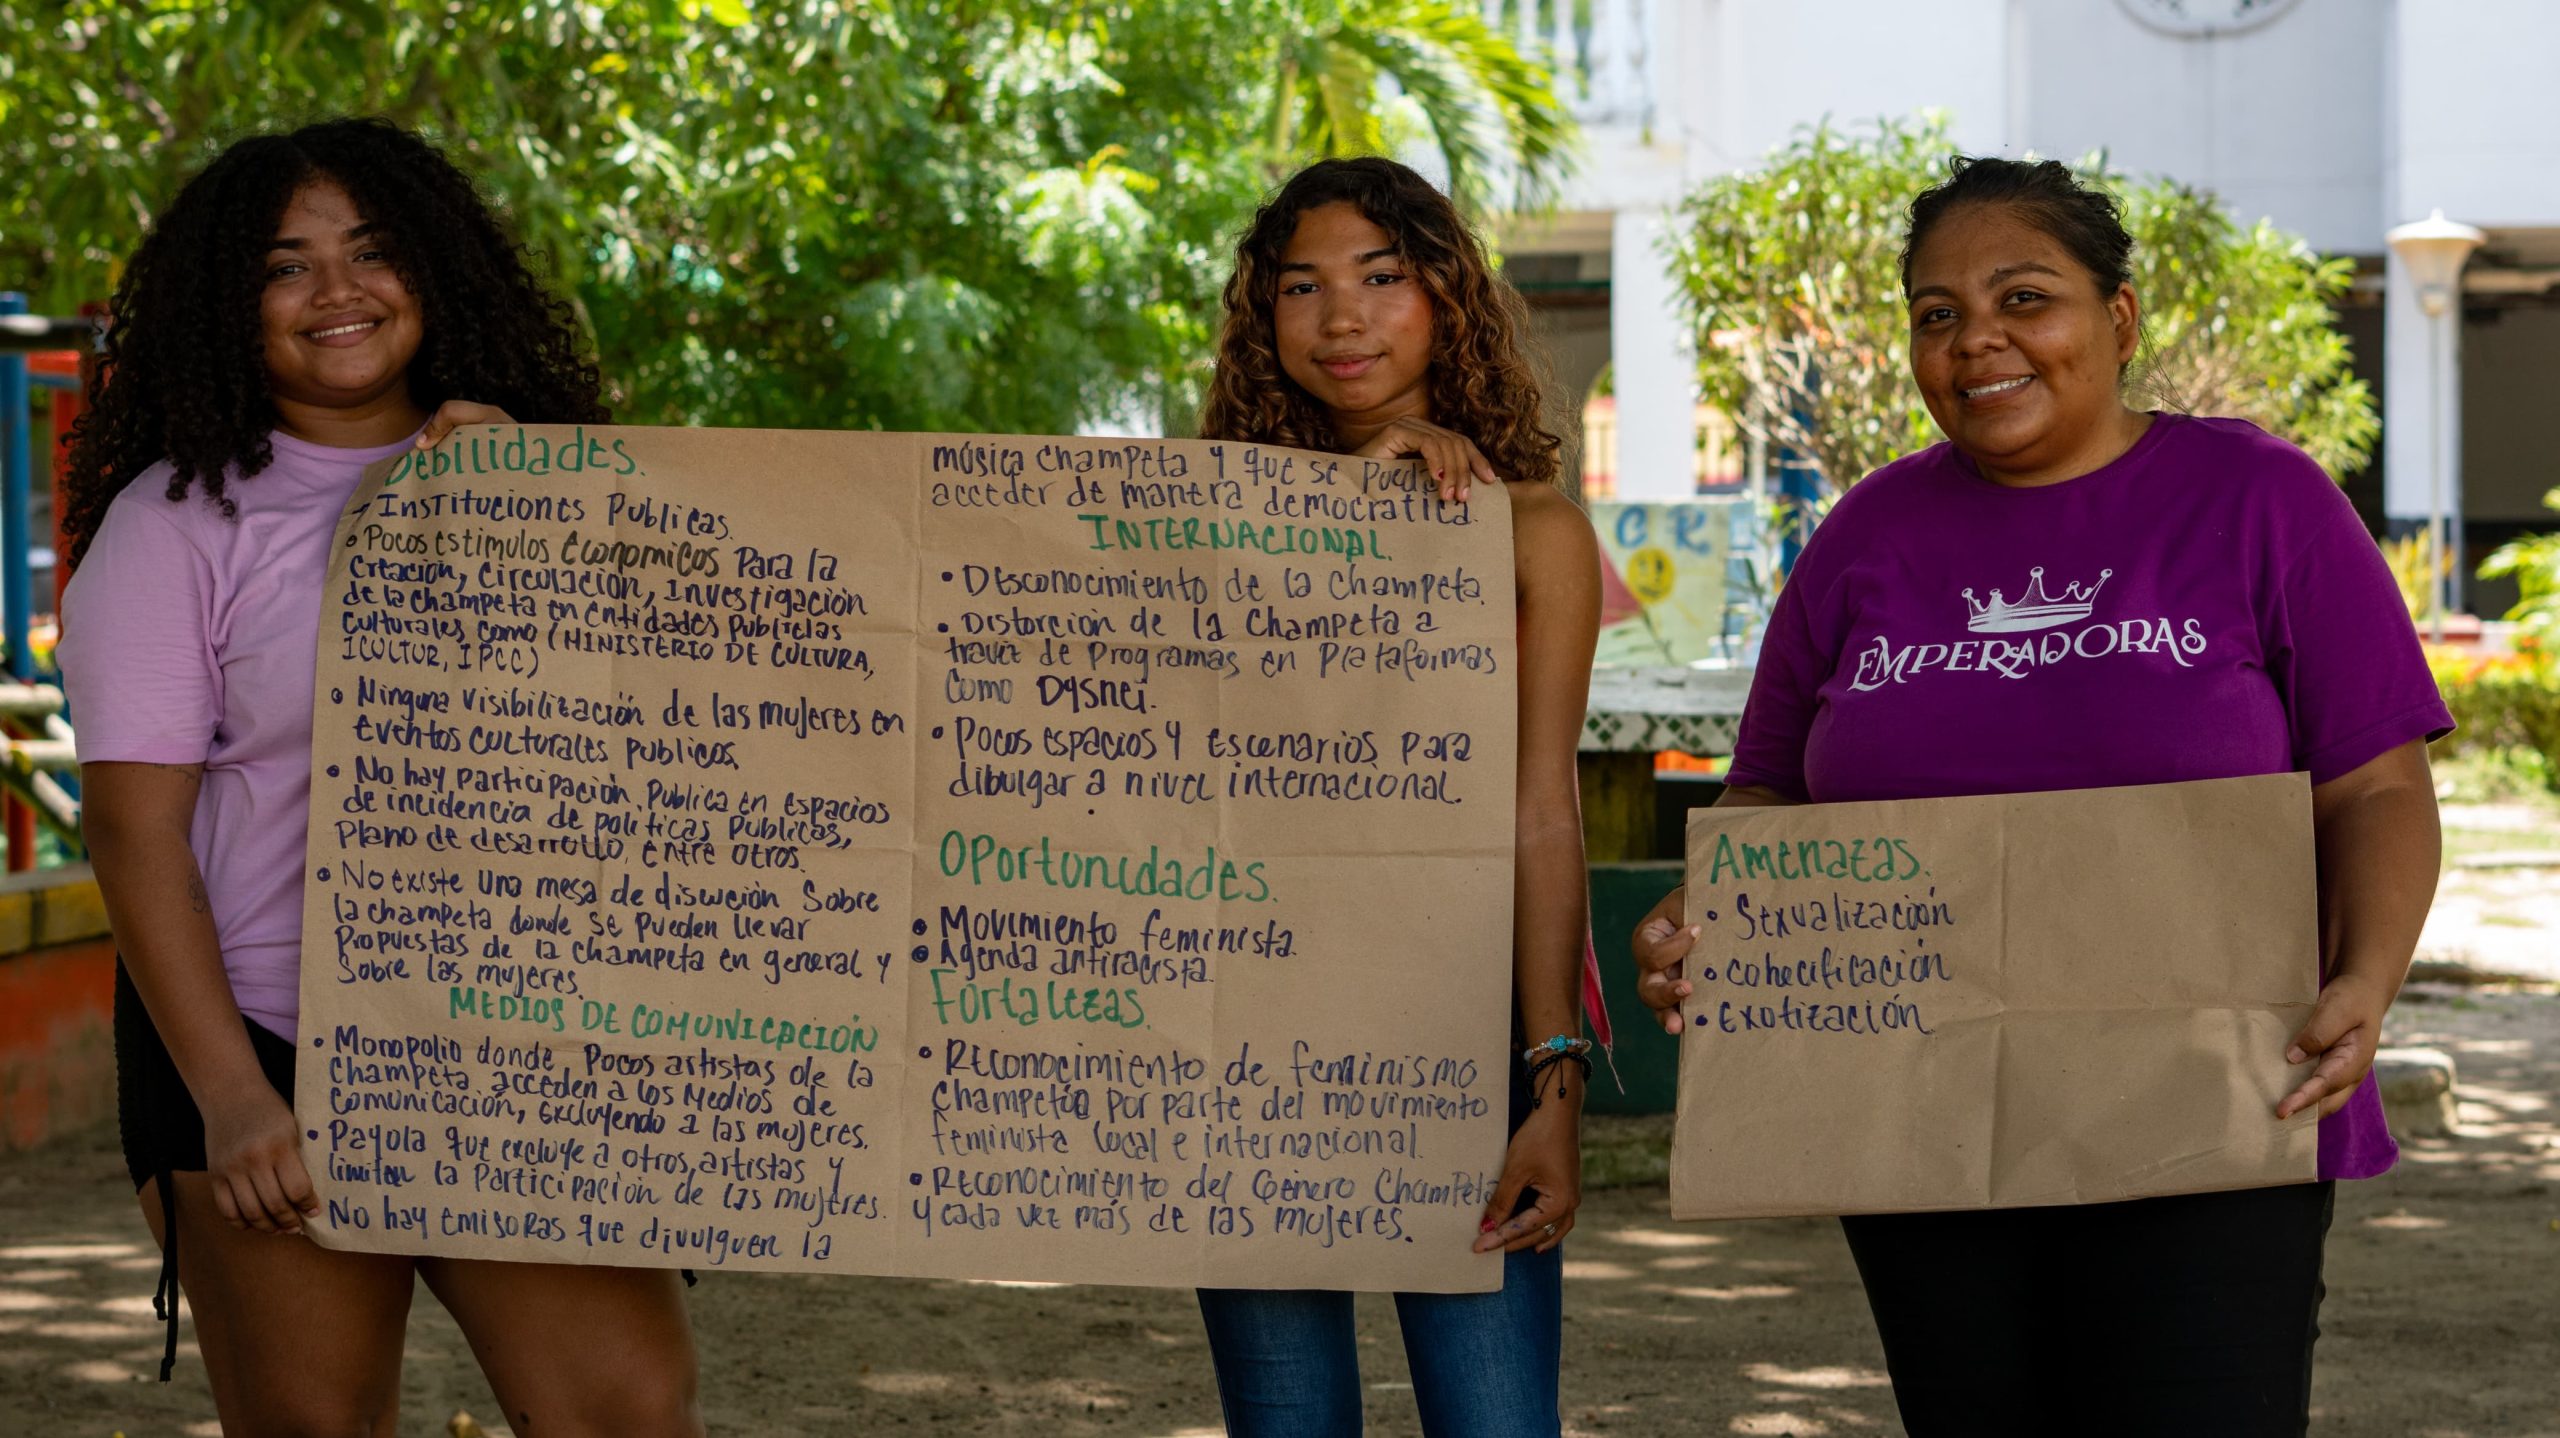 Debilidades.
Instituciones Publicas.
• Pocos estimulos económicos Para la
creación, circulación, Investigación
de la champeta en entidades publiclas
culturales como (MINISTERIO DE CULTURA,
ICULTUR, IPCC)
• Ninguna visibilización de las mujeres en
eventos culturales publicos.
• No hay participación, Publica en espacios
de incidencia de politicas Publicas,
Plano de desarrollo, entre otros.
• No existe una mesa de discución Sobre
la champeta donde se pueden llevar
Propuestas de la champeta en general y
Sobre las mujeres.
MEDIOS DE COMUNICACIÓN
• Monopolio donde Pocos artistas de la
champeta acceden a los Medios de
comunicación, excluyendo a las mujeres.
• Payola que excluye a otros artistas y
limitan la Participación de las mujeres.
No hay emisoras que divulguen la
música champeta y que se pueda
acceder de manera democratica.
INTERNACIONAL.
• Desconocimiento de la champeta.
• Distorción de la champeta a
travez de Programas en Plataformas
como Dysnei.
• Pocos espacios y escenarios para
dibulgar a nivel internacional.
Oportunidades.
• Movimiento feminista.
• Agenda antiracista.
Fortalezas.
• Reconocimiento de feminismo
champetúo por parte del movimiento
feminista local e internacional.
• Reconocimiento del Género Champeta
y cada vez más de las mujeres.
EMPERADORAS
Amenazas.
• Sexualización
• cohecificación
• Exotización
C R